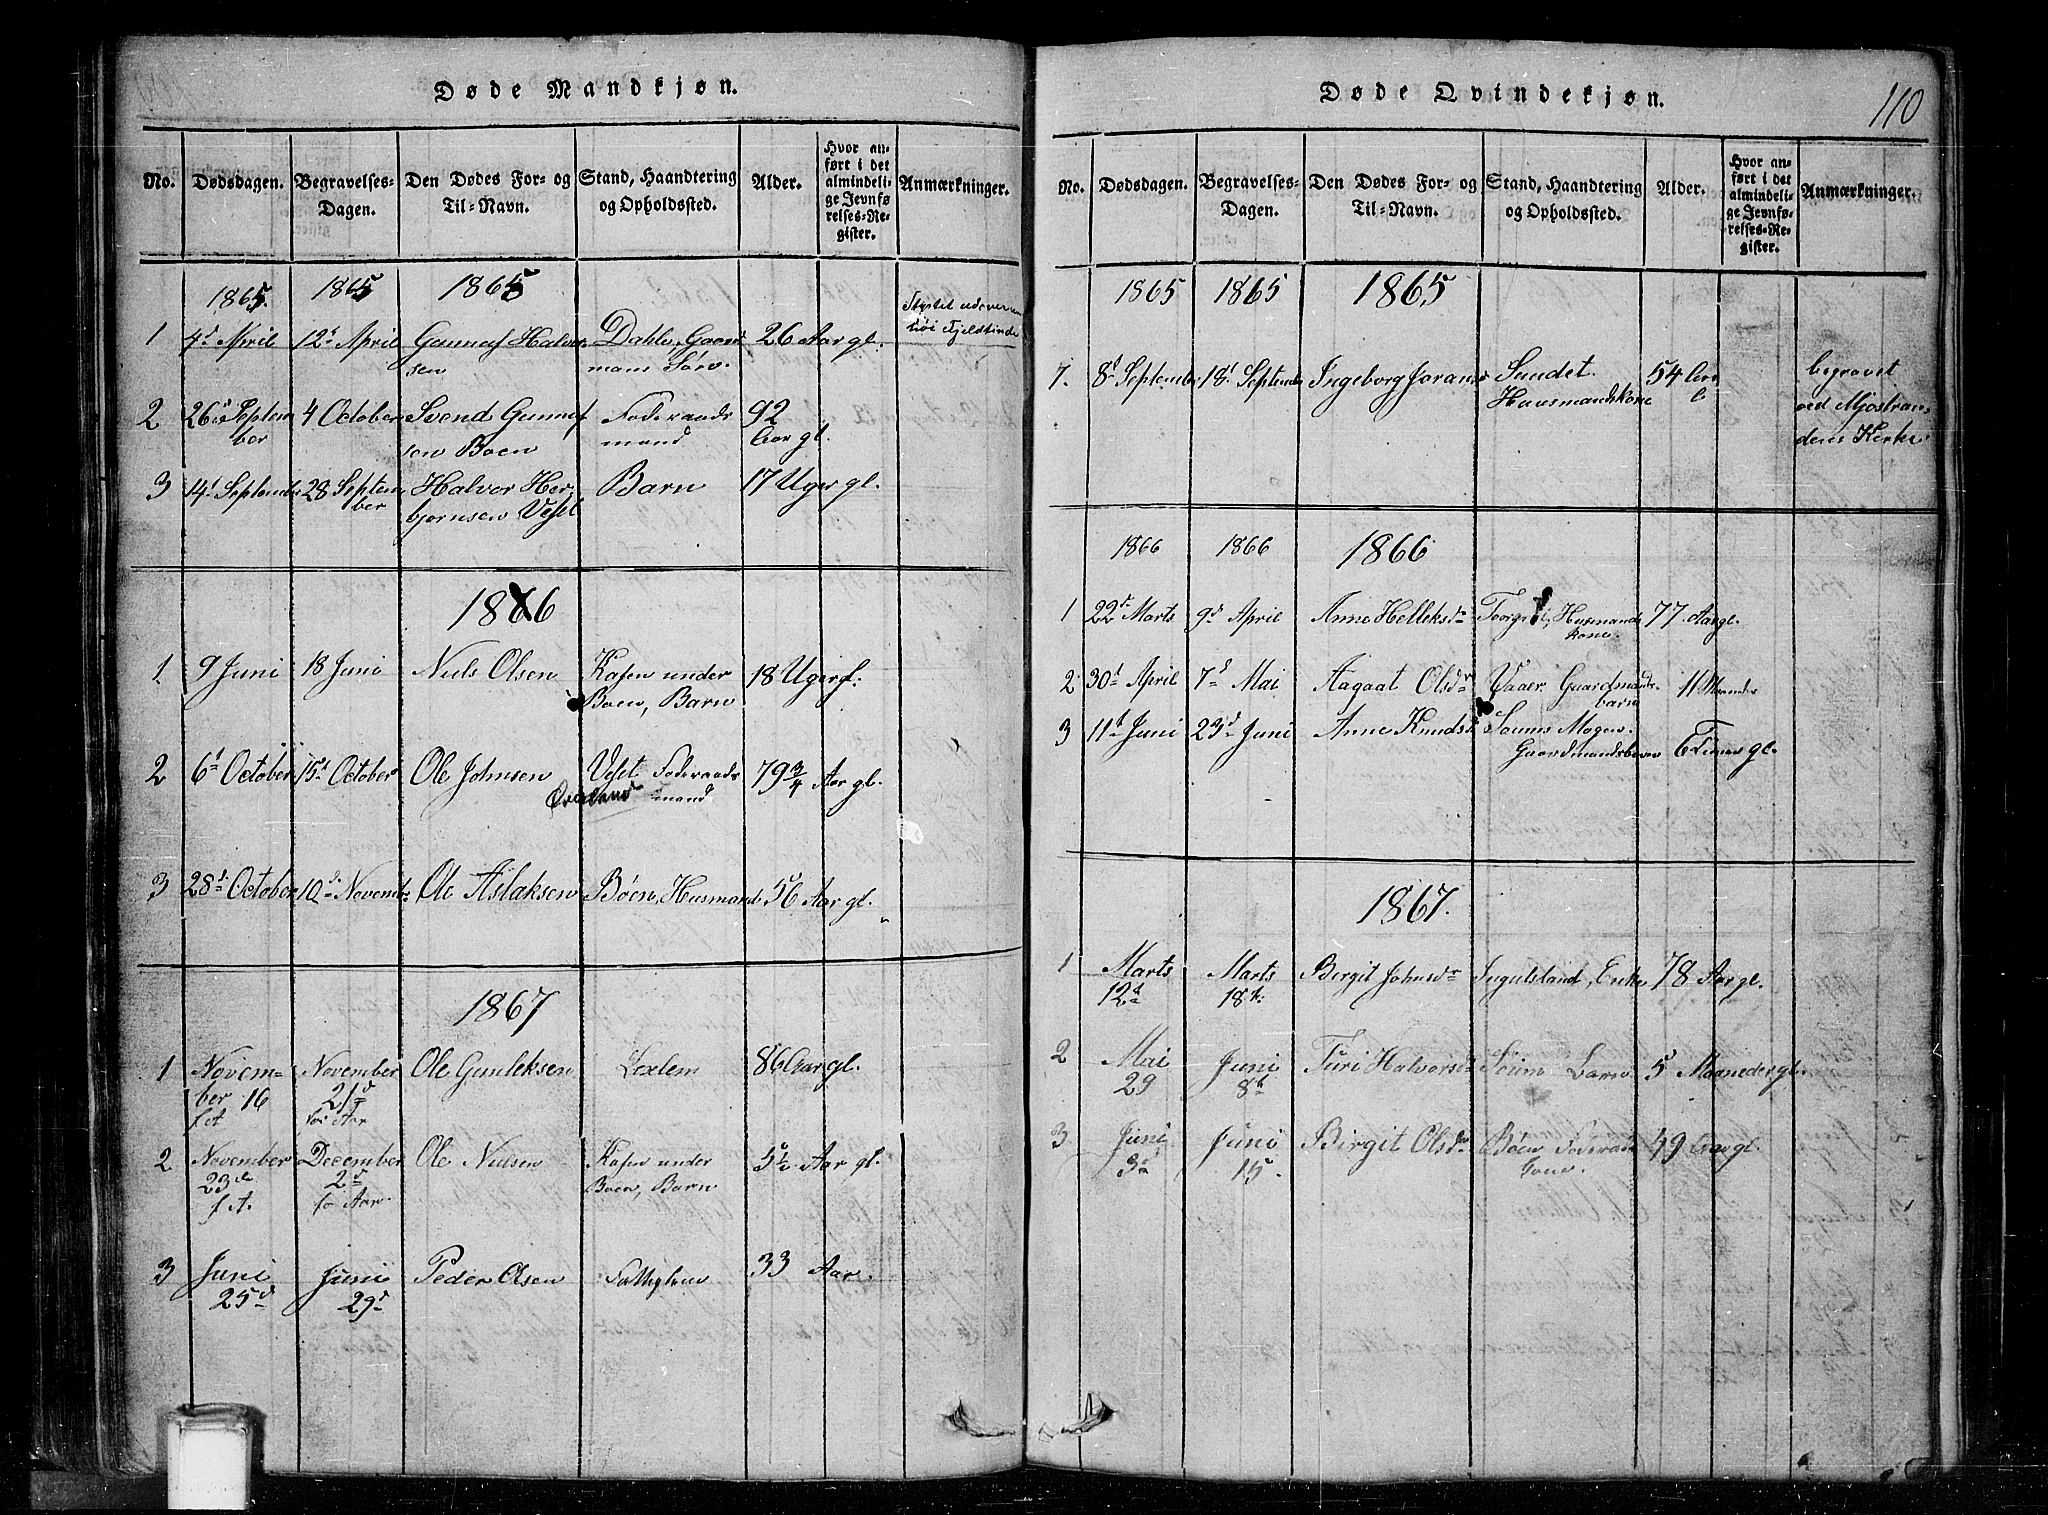 Døde Mandkjøn.
No. Dødsdagen. Begravelses-Dagen. Den Dødes For- og Til-Navn. Stand, Haandtering og Opholdssted. Alder. Hvor anført i det almindelige Jevnførelses-Register. Anmærkninger.
1865. 1865 1865
1 4d April 12d April Gunnuf Halvorsen Dahle, Gaardmans Søn. 26 Aar gl. Styrtet udover en høi Fjeldtinde
2 26d September 4 October Svend Gunnufsen Boen Foderaadsmand 92 Aar gl.
3 14d September 28 September Halvor Herbjornsen Veslet Barn 17 Uger gl.
1866
1. 9 Juni 18 Juni Niels Olsen Kasen under Boen, Barn 18 Uger gl.
2 6d October 15d October Ole Johnsen Foderaadsmand 79 3/4 Aar gl.
3 28d October 10d Novembr Ole Aslaksen Bøen, Husmand 56 Aar gl.
1867
1 November 16 f. A. November 21d for. Aar Ole Gunleksen 86 Aar gl.
2 November 23de f. A. December 2d fo Aar. Ole Nielsen Kasen under Boen, Barn 5 1/2 Aar gl.
3 Juni 25d Juni 29d Peder Olsen 33 Aar.
Døde Qvindekjøn.
110
No. Dødsdagen. Begravelses-Dagen. Den Dødes For- og Til-Navn. Stand, Haandtering og Opholdssted. Alder. Hvor anført i det almindelige Jevnførelses-Register. Anmærkninger.
1865 1865 1865
7. 8d September 18d September Ingeborg Joransd Sundet. Huusmandskone 54 Aar begravet ved Mjøstrandens Kirke.
1866 1866 1866
1 22d Marts 9d April Anne Helleksdr Husmandskone 77 Aar gl.
2 30d April 7d Mai Aagaat Olsdr Vaaer Gaardmandsbarn 11 Maaneder
3 11d Juni 23d Juni Anne Knudsd Gaardmandsbarn 6 Timer gl.
1867.
1 Marts 12te Marts 18de Birgit Johnsdr Ingulsland, Enke 78 Aar gl.
2 Mai 29 Juni 8de Turi Halvorsd Barn 5 Maaneder gl.
3 Juni 3d Juni 15. Birgit Olsdr Bøen Foderaadskone. 49 Aar gl.